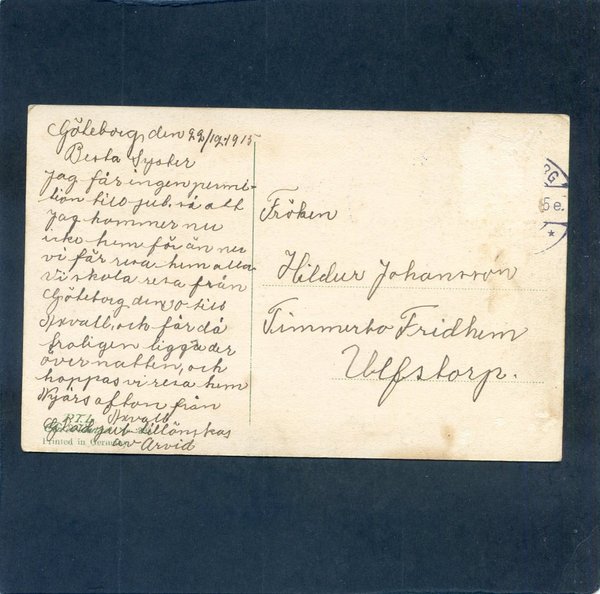 Göteborg den 22/12 1915
Bästa Syster
Jag får ingen permi-
tion till jul. så att
Jag kommer nu
icke hem för än nu
vi får resa hem alla
vi skola resa från
Göteborg den 30 till
Axvall, och får då
troligen ligga där
över natten, och
hoppas vi resa hem
Nyårs afton från
Axvall
Glad jul tillönskas
av Arvid
R.T.L.
Printed in Germany
Fröken
Hildur Johansson
Timmerbo Fridhem
Ulfstorp.
RG
5 e.
*